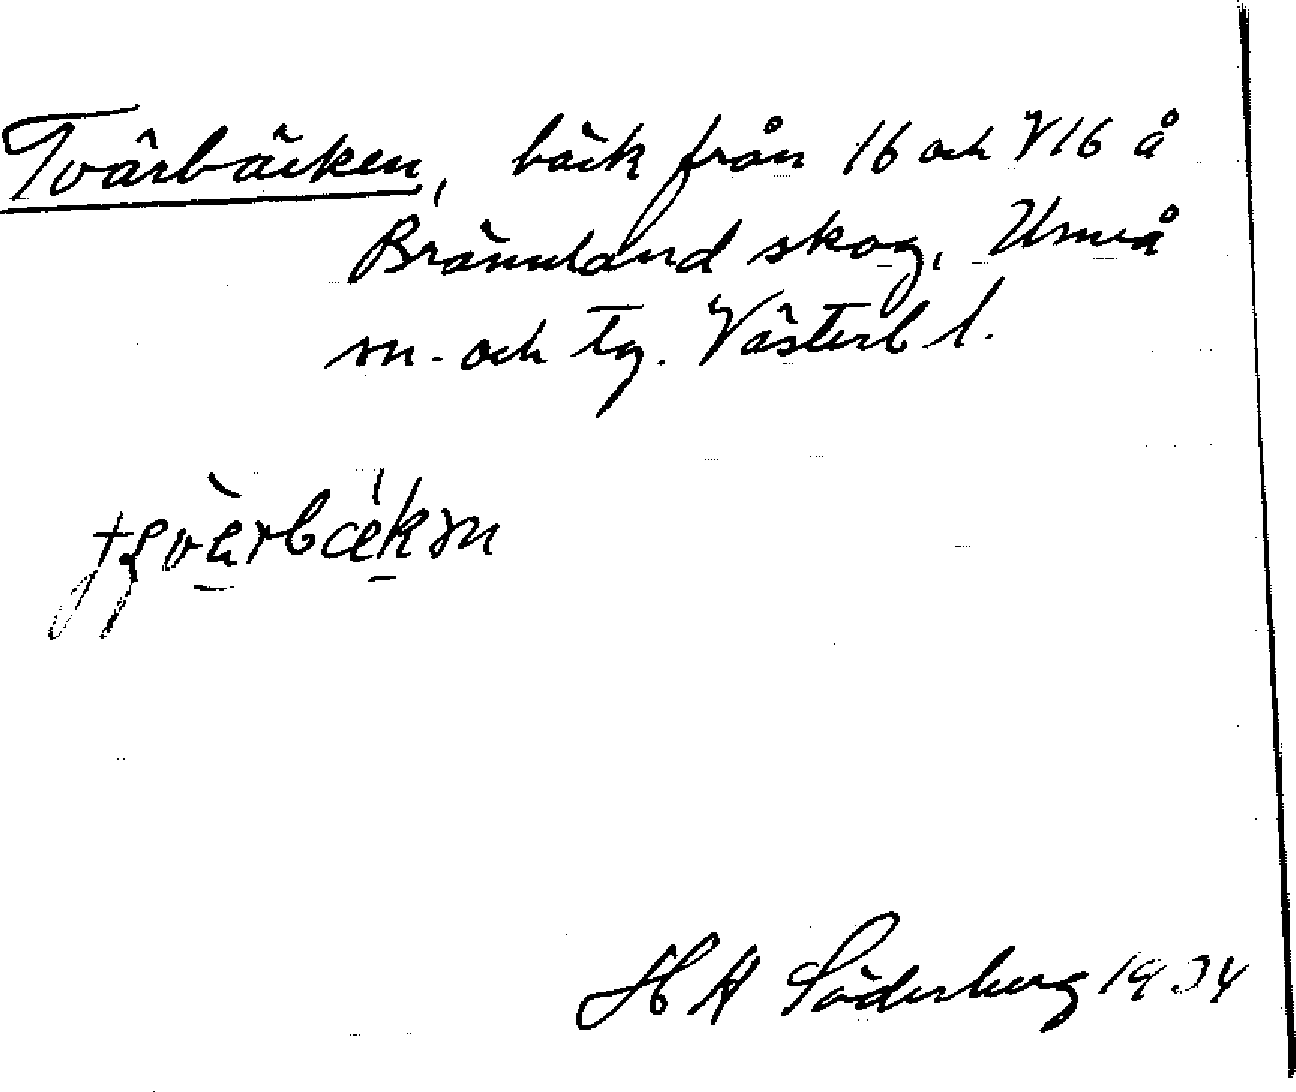 Tvärbäcken, bäck från 16 och V16 å
Brännland skog, Umeå
m. och tg. Västerb l.
H A Söderberg 1934